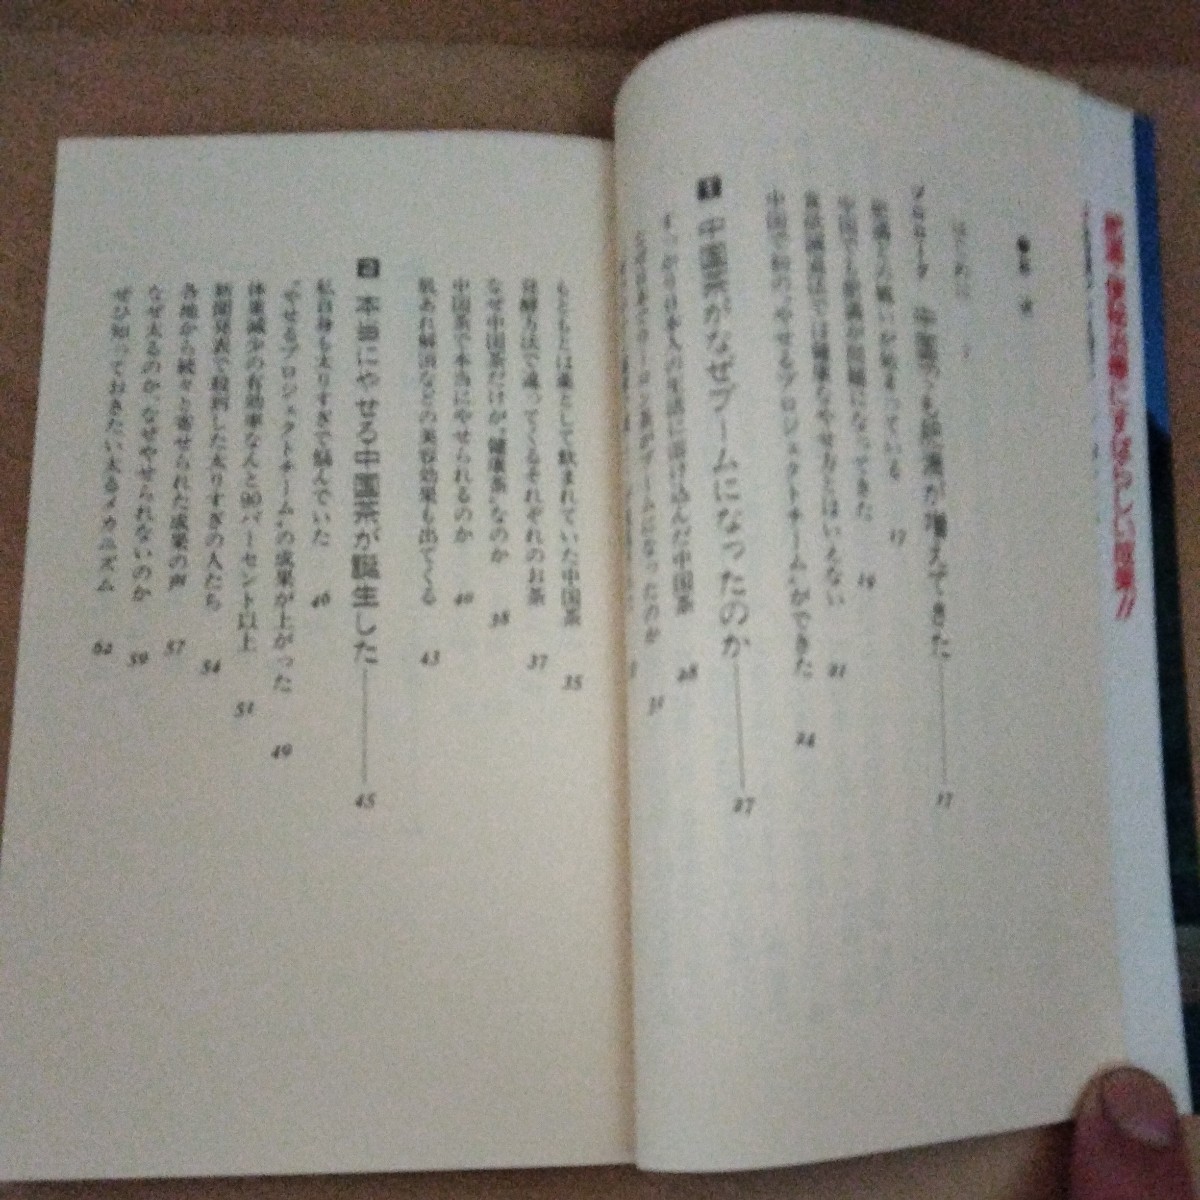 目次
はじめに 3
プロローグ 中国でも肥満が増えてきた 17
肥満との戦いが始まっている 17
中国でも肥満が問題になってきた 19
食欲減退法では健康なやせ方とはいえない 21
中国で初の“やせるプロジェクトチーム”ができた 24
1 中国茶がなぜブームになったのか 27
すっかり日本人の生活に溶け込んだ中国茶 28
ブームになったのか 31
もともとは薬として飲まれていた中国茶 35
発酵方法で違ってくるそれぞれのお茶 37
なぜ中国茶だけが“健康茶”なのか 38
中国茶で本当にやせられるのか 40
肌あれ解消などの美容効果も出てくる 43
2 本当にやせる中国茶が誕生した 45
私自身も太りすぎで悩んでいた 46
“やせるプロジェクトチーム”の成果が上がった 49
体重減少の有効率なんと90パーセント以上 51
新聞発表で殺到した太りすぎの人たち 54
各地から続々と寄せられた成果の声 57
なぜ太るのか、なぜやせられないのか 59
ぜひ知っておきたい太るメカニズム 62
にすばらしい成果!!